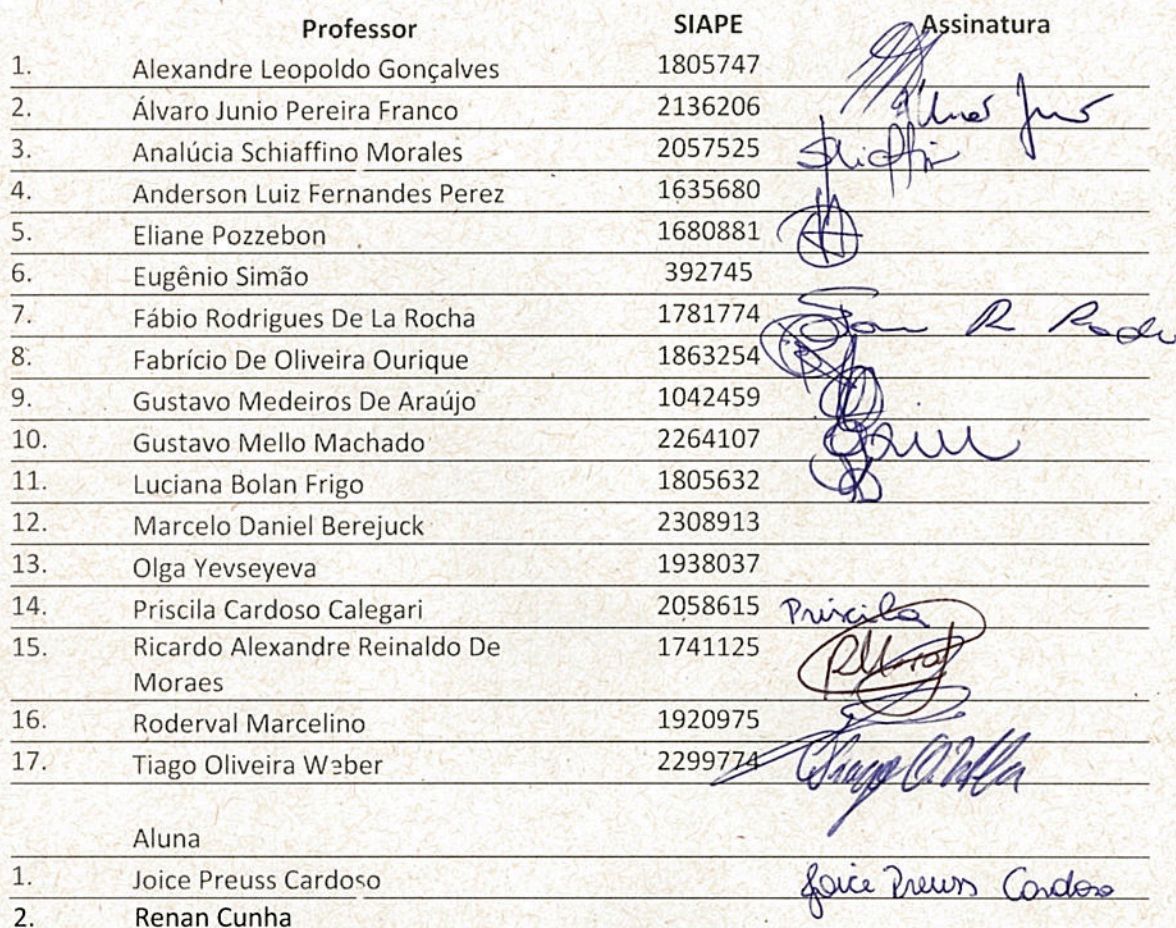 Professor SIAPE Assinatura
1. Alexandre Leopoldo Gonçalves 1805747
2. Álvaro Junio Pereira Franco 2136206
3. Analúcia Schiaffino Morales 2057525
4. Anderson Luiz Fernandes Perez 1635680
5. Eliane Pozzebon 1680881
6. Eugênio Simão 392745
7. Fábio Rodrigues De La Rocha 1781774
8. Fabrício De Oliveira Ourique 1863254
9. Gustavo Medeiros De Araújo 1042459
10. Gustavo Mello Machado 2264107
11. Luciana Bolan Frigo 1805632
12. Marcelo Daniel Berejuck 2308913
13. Olga Yevseyeva 1938037
14. Priscila Cardoso Calegari 2058615 Priscila
15. Ricardo Alexandre Reinaldo De 1741125
Moraes
16. Roderval Marcelino 1920975
17. Tiago Oliveira Weber 2299774
Aluna
1. Joice Preuss Cardoso Joice Preuss Cardoso
2. Renan Cunha